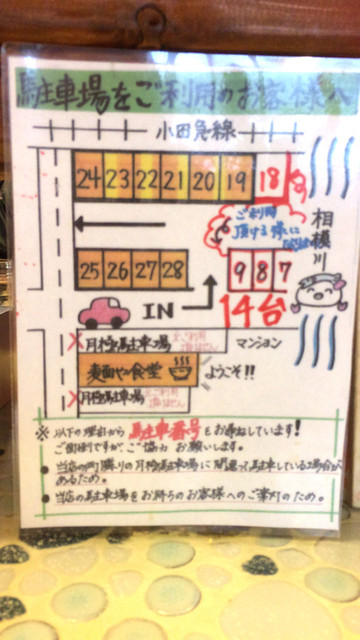 駐車場をご利用のお客様へ
小田急線
24 23 22 21 20 19 18
ご利用
頂ける様に
相模川
25 26 27 28
9 8 7
IN
14台
月極駐車場
マンション
麺面や食堂
ようこそ!!
月極駐車場
※以下の理由から駐車番号をお尋ねしています!
ご面倒ですが、ご協力お願いします。
●当店の両隣りの月極駐車場に間違って駐車している場合が
あるため。
●当店の駐車場をお持ちのお客様へのご案内のため。